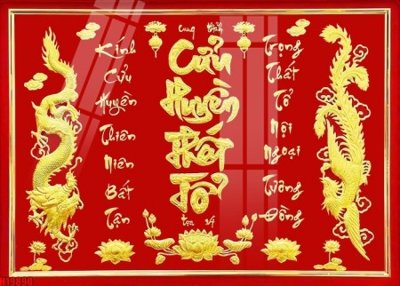 Cung thỉnh
Cửu
Huyền
Thất
Tổ
tọa vị
Kính
Cửu
Huyền
Thiên
Niên
Bất
Tận
Trọng
Thất
Tổ
Nội
Ngoại
Tương
Đồng